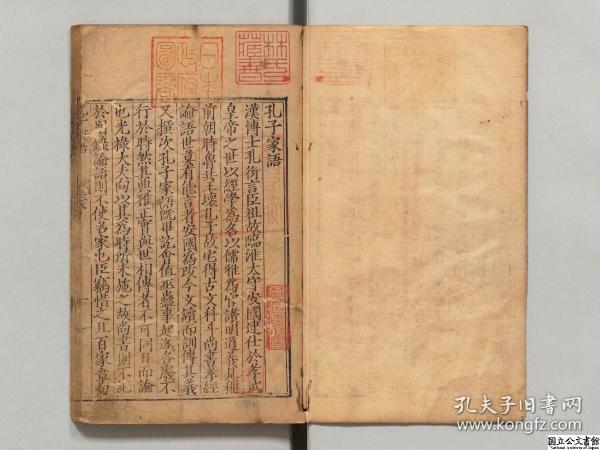 孔子家語
漢博士孔衍言臣祖故臨淮太守安國逮仕於孝武
皇帝之世以經學為名以儒雅為官讃明道義見稱
前朝時魯共王壞孔子故宅得古文科斗尚書孝經
論語世莫有能言者安國為改今文讀而訓傳其義
又撰次孔子家語既畢訖會值巫蠱事起遂各廢不
行於時然其典雅正實與世相傳者不可同日而論
也光祿大夫向以其為時所未施之故尚書則不記
於別錄論語則不使名家也臣竊惜之且百家章句
林氏藏書
日本政府圖書
孔夫子旧书网
www.kongfz.com
国立公文書館
National Archives of Japan